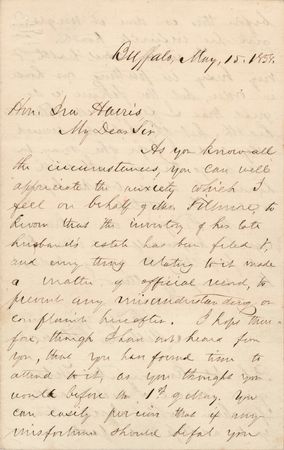 Buffalo, May, 15. 1858.
Hon. Ira Harris
My Dear Sir
As you know all
the circumstances, you can well
appreciate the anxiety which I
feel on behalf of Mrs Filmore, to
know that the inventory of his late
husband's estate has been filed &
and every thing relating to it made
a matter of official record, to
prevent any misunderstanding or
complaint hereafter. I hope there-
fore, though I have not heard from
you, that you have found time to
attend to it, as you thought you
would before the 1st of May. You
can easily perceive that if any
misfortune should befal you